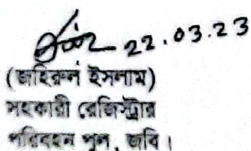 22.03.23
(জহিরুল ইসলাম)
সহকারী রেজিস্ট্রার
পরিবহন পুল, জবি।